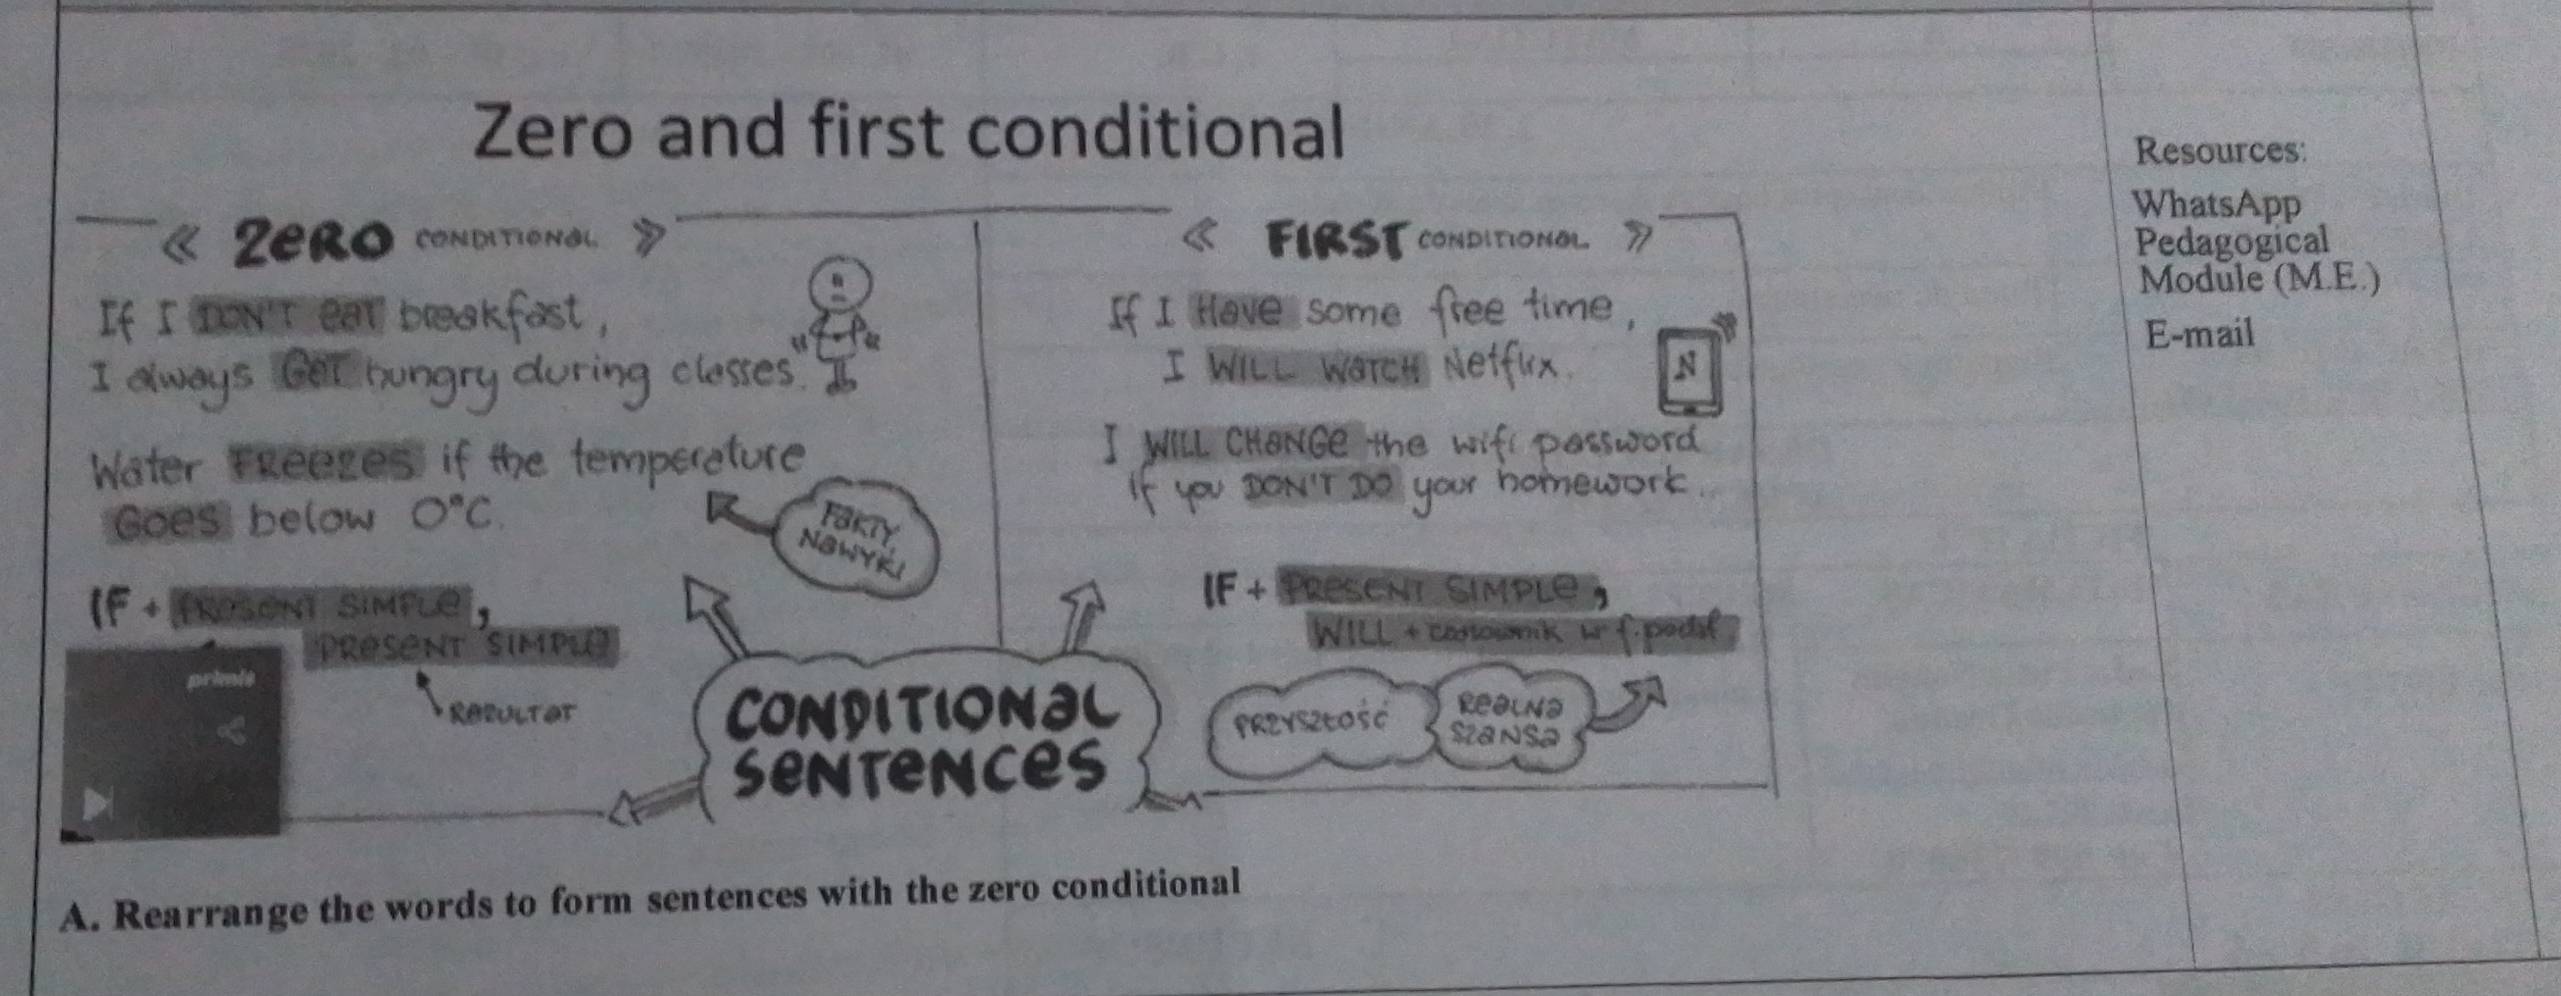 Zero and first conditional
« ZERO CONDITIONAL »
If I DON'T eat breakfast,
I always GET hungry during classes.
Water FREEZES if the temperature
GOES below 0°C.
FAKTY,
NAWYKI
IF + PRESENT SIMPLE,
PRESENT SIMPLE
REZULTAT
« FIRST CONDITIONAL »
If I HAVE some free time,
I WILL WATCH Netflix.
N
I WILL CHANGE the wifi password
if you DON'T DO your homework.
IF + PRESENT SIMPLE,
WILL + czasownik w f. podst
PRZYSZŁOŚĆ
REALNA
SZANSA
CONDITIONAL
SENTENCES
A. Rearrange the words to form sentences with the zero conditional
Resources:
WhatsApp
Pedagogical
Module (M.E.)
E-mail